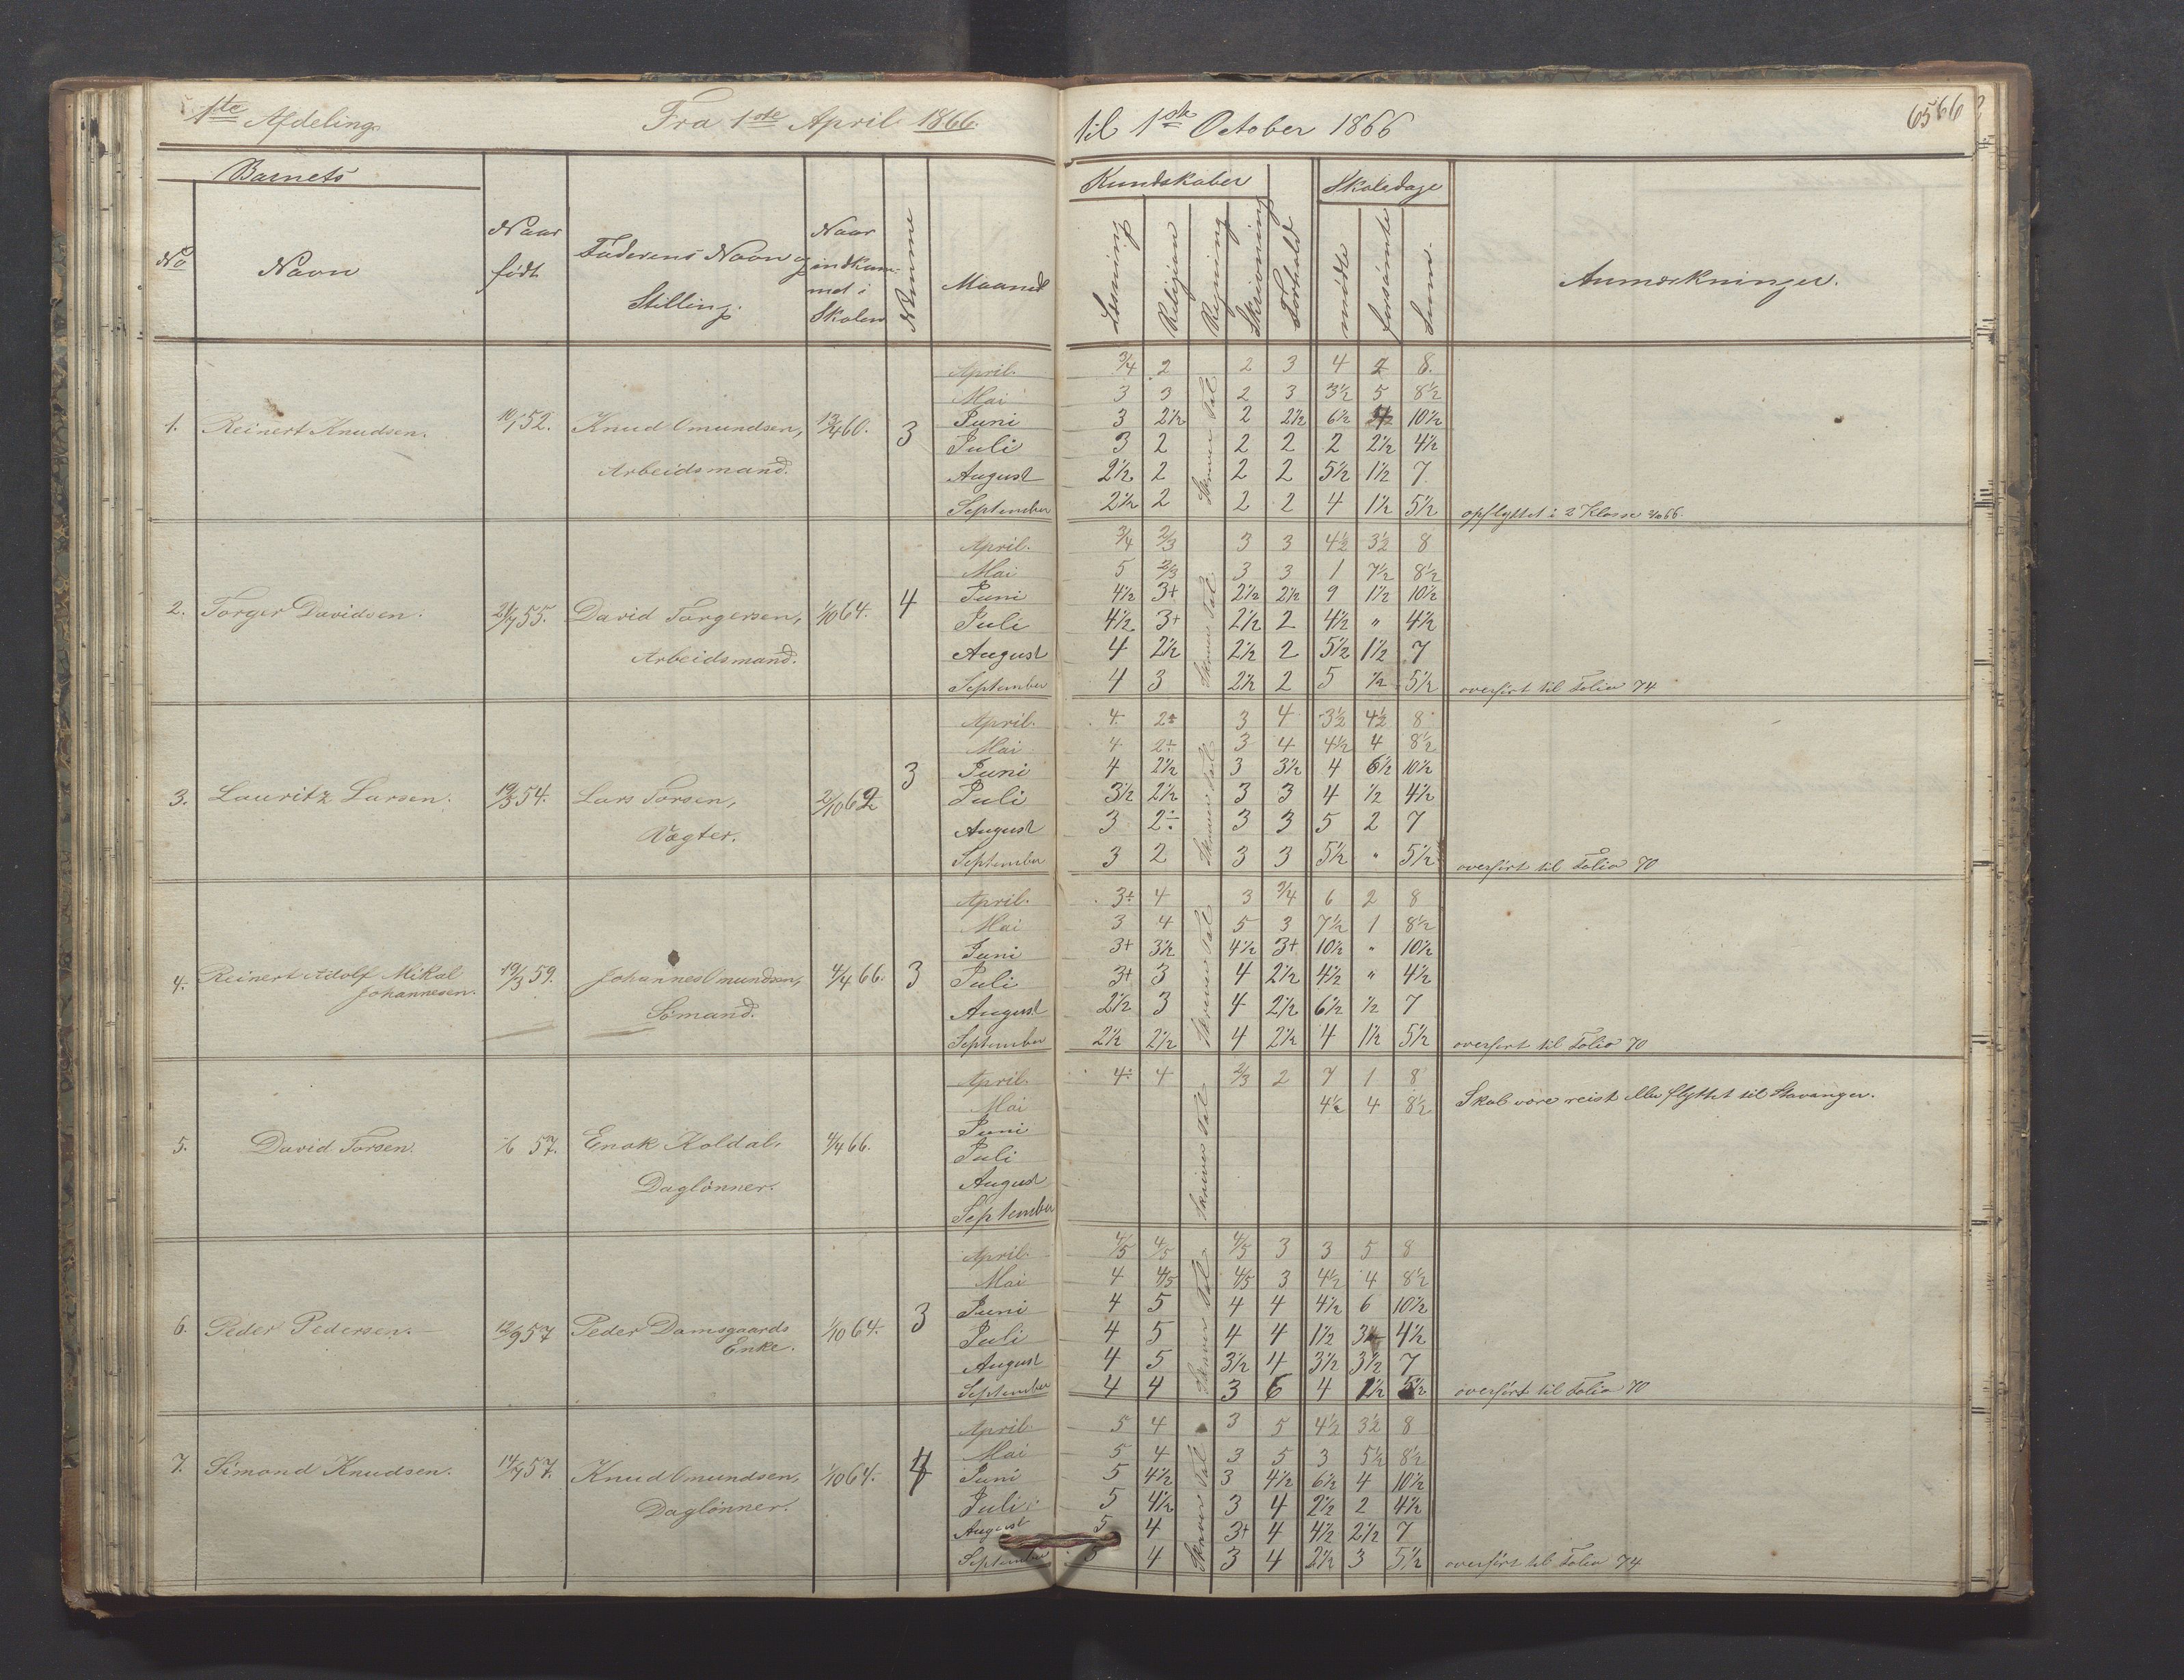 1ste Afdeling. Fra 1ste April 1866. til 1ste October 1866 6566
Barnets Kundskaber Skoledage
No Navn Naar født Faderens Navn og Stilling. Naar indkommet i Skolen Numme Maaned Læsning Religion Regning Skrivning Forhold mødte forsømte Sum. Anmærkninger.
April. 3/4 2 2 3 4 8.
Mai 3 3 2 3 3½ 5 8½
1. Reinert Knudsen. 10/1 52. Knud Omundsen, 13/4 60. 3 Juni 3 2½ Skriver Tal 2 2½ 6½ 4 10½
Juli 3 2 2 2 2 2½ 4½
Arbeidsmand. August 2½ 2 2 2 5½ 1½ 7
September 2½ 2 2 2 4 1½ 5½ opflyttet i 2 Klasse 66.
April. 3/4 2/3 3 3 4½ 3½ 8
Mai 5 2/3 3 3 1 7½ 8½
2. Torger Davidsen. 21/7 55. David Torgersen, 1/10 64. 4 Juni 4½ 3+ Skriver Tal 2½ 2½ 9 1½ 10½
Juli 4½ 3+ 2½ 2 4½ " 4½
Arbeidsmand. August 4 2½ 2½ 2 5½ 1½ 7
September 4 3 2½ 2 5 ½ 5½ overført til Folio 74
April. 4 2÷ 3 4 3½ 4½ 8
Mai 4 2÷ 3 4 4½ 4 8½
Juni 4 2½ Skriver Tal 3 3½ 4 6½ 10½
3. Lauritz Larsen. 19/3 54. Lars Torsen, 2/10 62 3 Juli 3½ 2½ 3 3 4 ½ 4½
Vægter. August 3 2÷ 3 3 5 2 7
September 3 2 3 3 5½ " 5½ overført til Folio 70
April. 3÷ 4 3 3/4 6 2 8
Mai 3 4 5 3 7½ 1 8½
Juni 3+ 3½ Skriver Tal 4½ 3+ 10½ " 10½
4. Reinert Adolf Mikal Johannesen. 19/3 59. Johannes Omundsen, 4/4 66. 3 Juli 3+ 3 4 2½ 4½ " 4½
Sømand. August 2½ 3 4 2½ 6½ ½ 7
September 2½ 2½ 4 2½ 4 1½ 5½ overført til Folio 70
April. 4÷ 4 2/3 2 7 1 8
Mai 4½ 4 8½ Skal være reist eller flyttet til Stavanger.
Juni Skriver Tal
5. David Torsen. 57. Enok Koldal, 4/4 66. Juli
Daglønner. August
September
April. 4/5 4/5 4/5 3 3 5 8
Mai 4 4/5 4/5 3 4½ 4 8½
Juni 4 5 Skriver Tal 4 4 4½ 6 10½
6. Peder Pedersen. 12/9 57 Peder Damsgaards Enke. 1/10 64. 3 Juli 4 5 4 4 1½ 3 4½
August 4 5 3½ 4 3½ 3½ 7
September 4 4 3 6 4 1½ 5½ overført til Folio 70
April. 5 4 3 5 4½ 3½ 8
Mai 5 4 3 5 3 5½ 8½
7. Simond Knudsen. 14/7 57. Knud Omundsen, 1/10 64. 4 Juni 5 4½ Skriver Tal 3 4½ 6½ 4 10½
Daglønner. Juli 5 4½ 3 4 2½ 2 4½
August 5 4 3+ 4 4½ 2½ 7
September 5 4 3 4 2½ 3 5½ overført til Folio 74